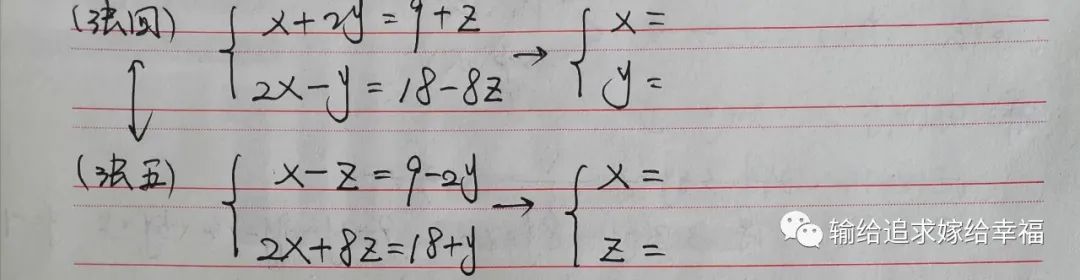 (张四) { x+2y=9+z → { x=
2x-y=18-8z y=
(张五) { x-z=9-2y → { x=
2x+8z=18+y z=
输给追求嫁给幸福